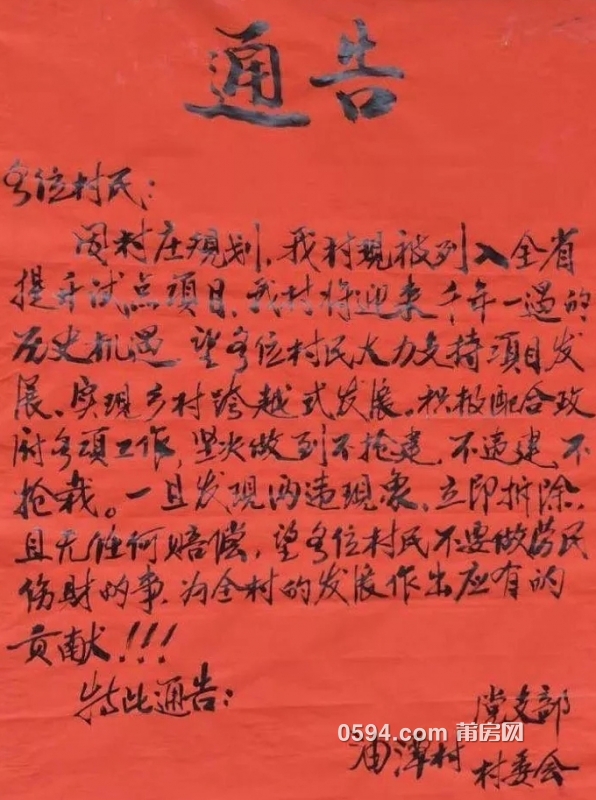 通告
各位村民：
因村庄规划，我村现被列入全省
提升试点项目，我村将迎来千年一遇的
历史机遇 望各位村民大力支持项目发
展、实现乡村跨越式发展。积极配合政
府各项工作，坚决做到不抢建，不违建，不
抢栽。一旦发现两违现象，立即拆除，
且无任何赔偿，望各位村民不要做劳民
伤财的事，为全村的发展作出应有的
贡献！！！
特此通告：
党支部
潭村 村委会
0594.com 莆房网